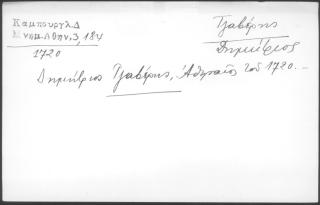 Καμπούρογλ Δ
Μνημ. Αθην, 3, 184
1720
Γλαβέρης
Δημήτριος
Δημήτριος Γλαβέρης, Ἀθηναῖος τοῦ 1720.-